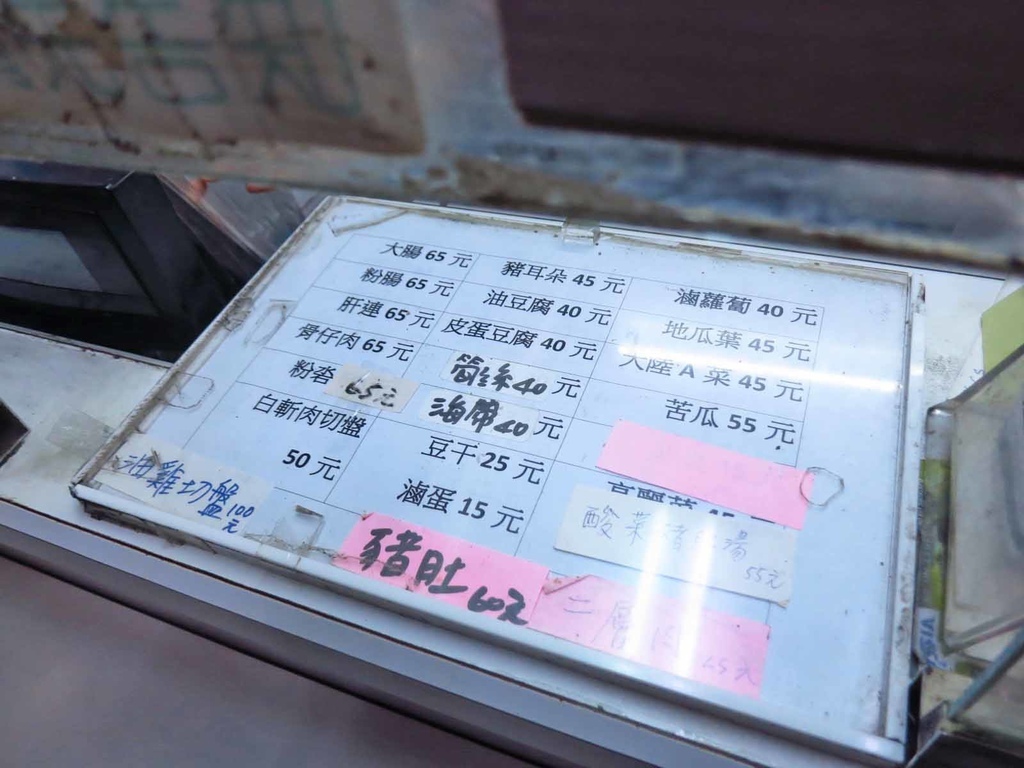 大腸 65 元
粉腸 65 元
肝連 65 元
骨仔肉 65 元
粉沓 65元
白斬肉切盤
50 元
油雞切盤 100元
豬耳朵 45 元
油豆腐 40 元
皮蛋豆腐 40 元
40 元
海帶 40 元
豆干 25 元
滷蛋 15 元
豬肚 60元
滷蘿蔔 40 元
地瓜葉 45 元
大陸 A 菜 45 元
苦瓜 55 元
酸菜 湯
55元
二層肉
VISA